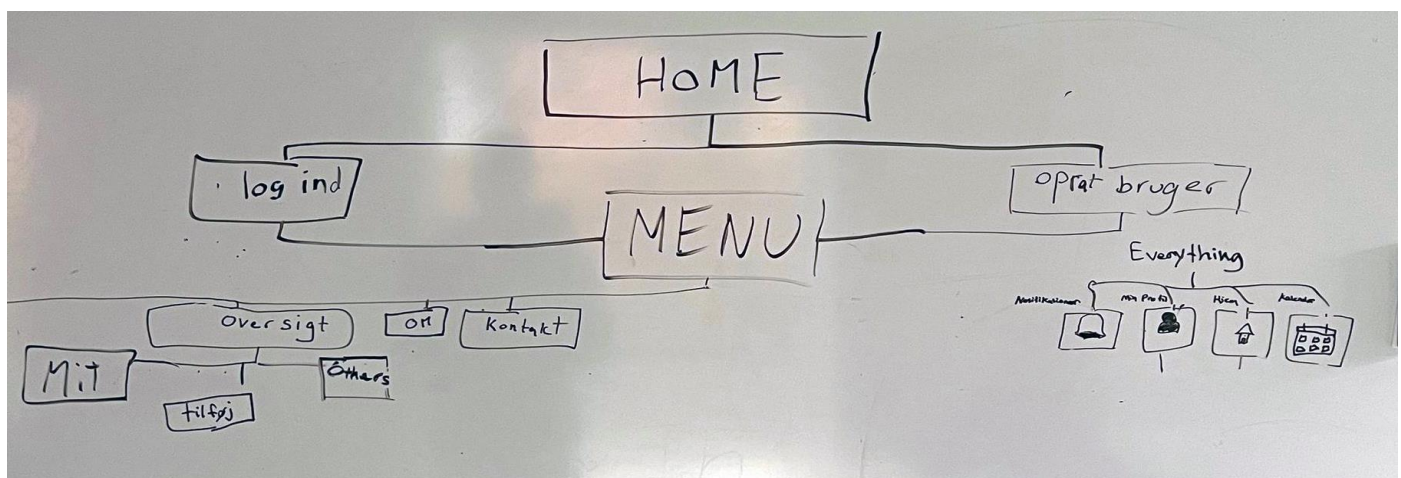 HOME
log ind
oprat bruger
MENU
Everything
Notifikationer
Min Profil
Hjem
Kalender
Oversigt
OM
Kontakt
Mit
Others
tilføj